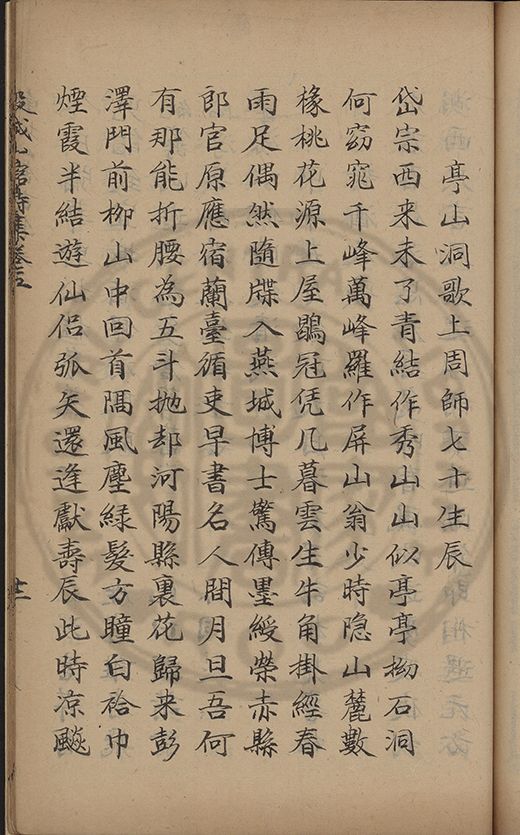 亭山洞歌上周師七十生辰
岱宗西来未了青結作秀山山似亭亭拗石洞
何窈窕千峰萬峰羅作屏山翁少時隐山麓數
椽桃花源上屋鶡冠凭几暮雲生牛角掛經春
雨足偶然隨牒入燕城博士驚傳墨綬榮赤縣
郎官原應宿蘭臺循吏早書名人間月旦吾何
有那能折腰為五斗抛却河陽縣裏花歸来彭
澤門前柳山中回首隔風塵緑髮方瞳白袷巾
煙霞半結遊仙侶弧矢還逢獻壽辰此時凉飈
詩集卷三
廿一